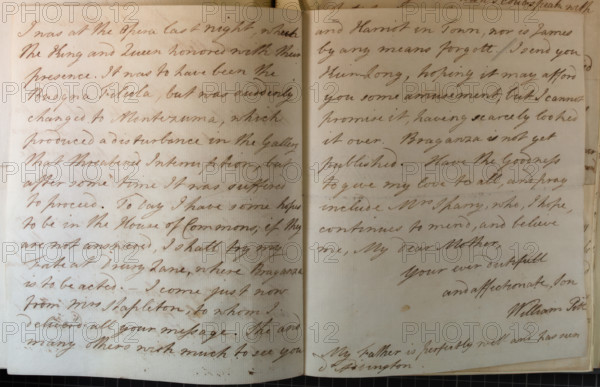 I was at the Opera last night, which
the King and Queen honored with their
presence. It was to have been the
Buona Figliola, but was suddenly
changed to Montezuma, which
produced a disturbance in the Gallery
that threatened Interruption, but
after some time It was suffered
to proceed. To day I have some hopes
to be in the House of Commons; if they
are not answered, I shall try my
fate at Drury Lane, where Braganza
is to be acted. – I come just now
from Mrs Stapleton, to whom I
delivered all your message. She and
many others wish much to see you
and Harriot in Town, nor is James
by any means forgott. I send you
Hien Song, hoping it may afford
you some amusement, but I cannot
promise it, having scarcely looked
it over. Braganza is not yet
published. Have the Goodness
to give my love to all, and pray
include Mrs Sparry, who, I hope,
continues to mend, and believe
me, My dear Mother,
Your ever dutifull
and affectionate Son
William Pitt
My Father is perfectly well and has seen
Dr Addington.
PHOTO12